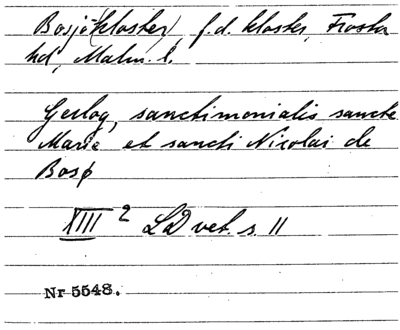 Bosjökloster, f.d. kloster, Frosta
hd, Malm. l.
Gerlog, sanctimonialis sancte
Marie et sancti Nicolai de
Bosø
XIII 2 LD vet. s 11
Nr 5548.